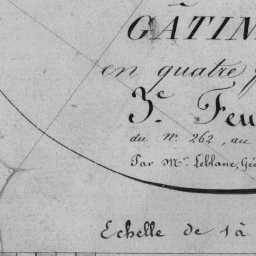 GÂTIN
en quatre
3.e Feu
du N.o 262, au
Par Mr. Leblanc, Gé
Echelle de 1 à